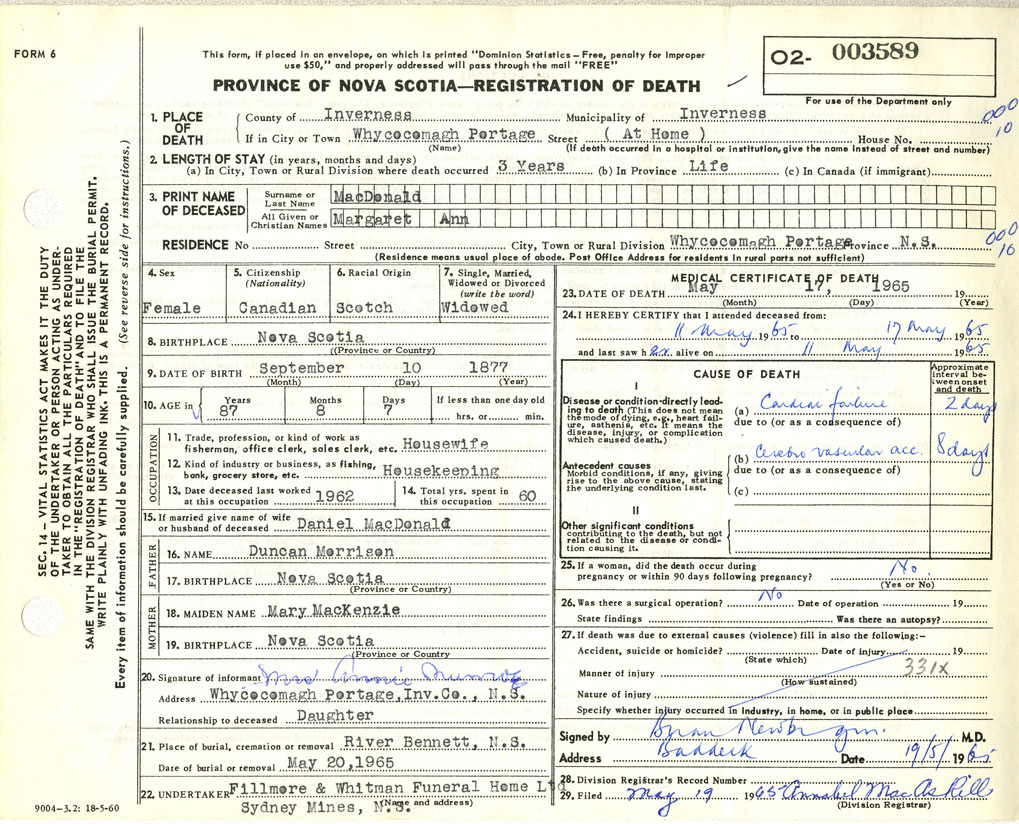 FORM 6
This form, if placed in an envelope, on which is printed "Dominion Statistics – Free, penalty for improper
use $50," and properly addressed will pass through the mail "FREE"
PROVINCE OF NOVA SCOTIA—REGISTRATION OF DEATH
O2- 003589
For use of the Department only
1. PLACE OF DEATH
County of Inverness Municipality of Inverness
000
10
If in City or Town Whycocomagh Portage Street ( At Home ) House No.
(Name) (If death occurred in a hospital or institution, give the name instead of street and number)
2. LENGTH OF STAY (in years, months and days)
(a) In City, Town or Rural Division where death occurred 3 Years (b) In Province Life (c) In Canada (if immigrant)
3. PRINT NAME OF DECEASED
Surname or Last Name MacDonald
All Given or Christian Names Margaret Ann
RESIDENCE No Street City, Town or Rural Division Whycocomagh Portage Province N.S.
000
10
(Residence means usual place of abode. Post Office Address for residents in rural parts not sufficient)
4. Sex
Female
5. Citizenship
(Nationality)
Canadian
6. Racial Origin
Scotch
7. Single, Married,
Widowed or Divorced
(write the word)
Widowed
8. BIRTHPLACE Nova Scotia
(Province or Country)
9. DATE OF BIRTH September 10 1877
(Month) (Day) (Year)
10. AGE in
Years Months Days If less than one day old
87 8 7 hrs. or min.
OCCUPATION
11. Trade, profession, or kind of work as
fisherman, office clerk, sales clerk, etc. Housewife
12. Kind of industry or business, as fishing,
bank, grocery store, etc. Housekeeping
13. Date deceased last worked
at this occupation 1962
14. Total yrs. spent in
this occupation 60
15. If married give name of wife
or husband of deceased Daniel MacDonald
FATHER
16. NAME Duncan Morrison
17. BIRTHPLACE Nova Scotia
(Province or Country)
MOTHER
18. MAIDEN NAME Mary MacKenzie
19. BIRTHPLACE Nova Scotia
(Province or Country
20. Signature of informant Mrs Annie Munroe
Address Whycocomagh Portage, Inv.Co., N.S.
Relationship to deceased Daughter
21. Place of burial, cremation or removal River Bennett, N.S.
Date of burial or removal May 20,1965
22. UNDERTAKER Fillmore & Whitman Funeral Home Ltd
Sydney Mines, N.S.
(Name and address)
9004-3.2: 18-5-60
MEDICAL CERTIFICATE OF DEATH
23. DATE OF DEATH May 17, 1965 19
(Month) (Day) (Year)
24. I HEREBY CERTIFY that I attended deceased from:
11 May 1965 to 17 May 1965
and last saw her alive on 11 May 1965
CAUSE OF DEATH
Approximate
interval be-
tween onset
and death
I
Disease or condition directly lead-
ing to death (This does not mean
the mode of dying, e.g., heart fail-
ure, asthenia, etc. It means the
disease, injury, or complication
which caused death.)
(a) Cardiac failure 2 days
due to (or as a consequence of)
Antecedent causes
Morbid conditions, if any, giving
rise to the above cause, stating
the underlying condition last.
(b) Cerebro vascular acc. 8 days
due to (or as a consequence of)
(c)
II
Other significant conditions
contributing to the death, but not
related to the disease or condi-
tion causing it.
25. If a woman, did the death occur during
pregnancy or within 90 days following pregnancy? No.
(Yes or No)
26. Was there a surgical operation? No Date of operation 19
State findings Was there an autopsy?
27. If death was due to external causes (violence) fill in also the following:–
Accident, suicide or homicide? Date of injury 19
(State which)
Manner of injury 331X
(How sustained)
Nature of injury
Specify whether injury occurred in industry, in home, or in public place
Signed by Brian M.D.
Address Baddeck Date 19/5/ 1965
28. Division Registrar's Record Number
29. Filed May 19 1965 Annabel MacAskill
(Division Registrar)
SEC. 14 – VITAL STATISTICS ACT MAKES IT THE DUTY
OF THE UNDERTAKER OR PERSON ACTING AS UNDER-
TAKER TO OBTAIN ALL THE PARTICULARS REQUIRED
IN THE "REGISTRATION OF DEATH" AND TO FILE THE
SAME WITH THE DIVISION REGISTRAR WHO SHALL ISSUE THE BURIAL PERMIT.
WRITE PLAINLY WITH UNFADING INK. THIS IS A PERMANENT RECORD.
Every item of information should be carefully supplied. (See reverse side for instructions.)